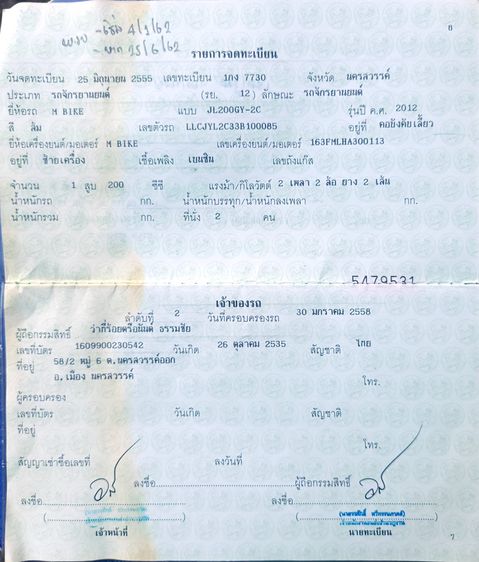 8
พ.ร.บ - เริ่ม 4/1/62
- ขาด 25/6/62
รายการจดทะเบียน
วันจดทะเบียน 25 มิถุนายน 2555 เลขทะเบียน 1กง 7730 จังหวัด นครสวรรค์
ประเภท รถจักรยานยนต์ (รย. 12) ลักษณะ รถจักรยานยนต์
ยี่ห้อรถ M BIKE แบบ JL200GY-2C รุ่นปี ค.ศ. 2012
สี ส้ม เลขตัวรถ LLCJYL2C33B100085 อยู่ที่ คอบังคับเลี้ยว
ยี่ห้อเครื่องยนต์/มอเตอร์ M BIKE เลขเครื่องยนต์/มอเตอร์ 163FMLHA300113
อยู่ที่ ซ้ายเครื่อง เชื้อเพลิง เบนซิน เลขถังแก๊ส
จำนวน 1 สูบ 200 ซีซี แรงม้า/กิโลวัตต์ 2 เพลา 2 ล้อ ยาง 2 เส้น
น้ำหนักรถ กก. น้ำหนักบรรทุก/น้ำหนักลงเพลา กก.
น้ำหนักรวม กก. ที่นั่ง 2 คน
5479531
เจ้าของรถ
ลำดับที่ 2 วันที่ครอบครองรถ 30 มกราคม 2558
ผู้ถือกรรมสิทธิ์ ว่าที่ร้อยตรีอนันต์ ธรรมชัย
เลขที่บัตร 1609900230542 วันเกิด 26 ตุลาคม 2535 สัญชาติ ไทย
ที่อยู่ 58/2 หมู่ 6 ต.นครสวรรค์ออก
อ.เมือง นครสวรรค์ โทร.
ผู้ครอบครอง
เลขที่บัตร วันเกิด สัญชาติ
ที่อยู่
โทร.
สัญญาเช่าซื้อเลขที่ ลงวันที่
ลงชื่อ ผู้ถือกรรมสิทธิ์
ลงชื่อ ลงชื่อ
( ) ( )
เจ้าหน้าที่ นายทะเบียน
7